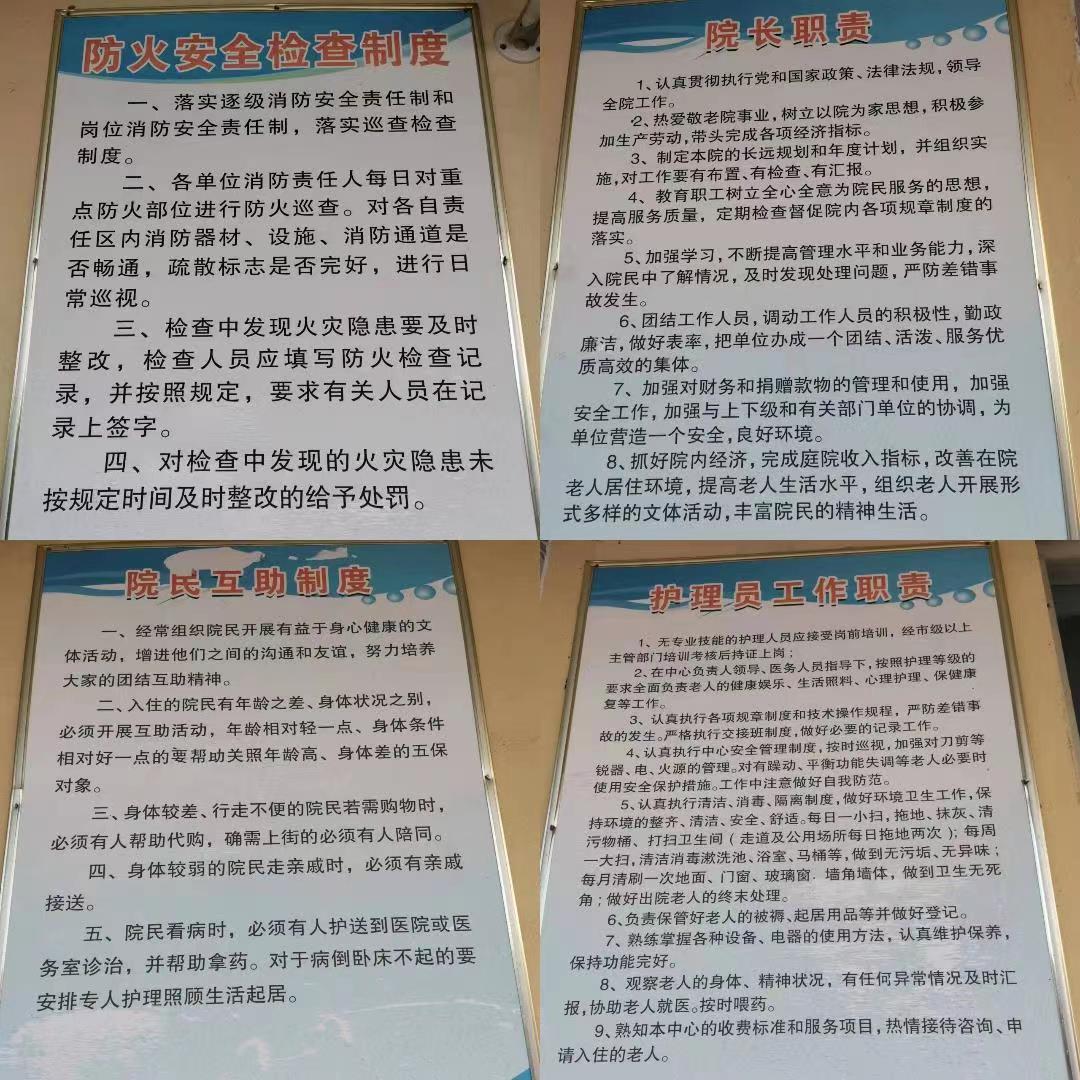 防火安全检查制度
一、落实逐级消防安全责任制和
岗位消防安全责任制，落实巡查检查
制度。
二、各单位消防责任人每日对重
点防火部位进行防火巡查。对各自责
任区内消防器材、设施、消防通道是
否畅通，疏散标志是否完好，进行日
常巡视。
三、检查中发现火灾隐患要及时
整改，检查人员应填写防火检查记
录，并按照规定，要求有关人员在记
录上签字。
四、对检查中发现的火灾隐患未
按规定时间及时整改的给予处罚。
院长职责
1、认真贯彻执行党和国家政策、法律法规，领导
全院工作。
2、热爱敬老院事业，树立以院为家思想，积极参
加生产劳动，带头完成各项经济指标。
3、制定本院的长远规划和年度计划，并组织实
施，对工作要有布置、有检查、有汇报。
4、教育职工树立全心全意为院民服务的思想，
提高服务质量，定期检查督促院内各项规章制度的
落实。
5、加强学习，不断提高管理水平和业务能力，深
入院民中了解情况，及时发现处理问题，严防差错事
故发生。
6、团结工作人员，调动工作人员的积极性，勤政
廉洁，做好表率，把单位办成一个团结、活泼、服务优
质高效的集体。
7、加强对财务和捐赠款物的管理和使用，加强
安全工作，加强与上下级和有关部门单位的协调，为
单位营造一个安全，良好环境。
8、抓好院内经济，完成庭院收入指标，改善在院
老人居住环境，提高老人生活水平，组织老人开展形
式多样的文体活动，丰富院民的精神生活。
院民互助制度
一、经常组织院民开展有益于身心健康的文
体活动，增进他们之间的沟通和友谊，努力培养
大家的团结互助精神。
二、入住的院民有年龄之差、身体状况之别，
必须开展互助活动，年龄相对轻一点、身体条件
相对好一点的要帮助关照年龄高、身体差的五保
对象。
三、身体较差、行走不便的院民若需购物时，
必须有人帮助代购，确需上街的必须有人陪同。
四、身体较弱的院民走亲戚时，必须有亲戚
接送。
五、院民看病时，必须有人护送到医院或医
务室诊治，并帮助拿药。对于病倒卧床不起的要
安排专人护理照顾生活起居。
护理员工作职责
1、无专业技能的护理人员应接受岗前培训，经市级以上
主管部门培训考核后持证上岗；
2、在中心负责人领导、医务人员指导下，按照护理等级的
要求全面负责老人的健康娱乐、生活照料、心理护理、保健康
复等工作。
3、认真执行各项规章制度和技术操作规程，严防差错事
故的发生。严格执行交接班制度，做好必要的记录工作。
4、认真执行中心安全管理制度，按时巡视，加强对刀剪等
锐器、电、火源的管理。对有躁动、平衡功能失调等老人必要时
使用安全保护措施。工作中注意做好自我防范。
5、认真执行清洁、消毒、隔离制度，做好环境卫生工作，保
持环境的整齐、清洁、安全、舒适。每日一小扫，拖地、抹灰、清
污物桶、打扫卫生间（走道及公用场所每日拖地两次）；每周
一大扫，清洁消毒漱洗池、浴室、马桶等，做到无污垢、无异味；
每月清刷一次地面、门窗、玻璃窗．墙角墙体，做到卫生无死
角；做好出院老人的终末处理。
6、负责保管好老人的被褥、起居用品等并做好登记。
7、熟练掌握各种设备、电器的使用方法，认真维护保养，
保持功能完好。
8、观察老人的身体、精神状况，有任何异常情况及时汇
报，协助老人就医。按时喂药。
9、熟知本中心的收费标准和服务项目，热情接待咨询、申
请入住的老人。